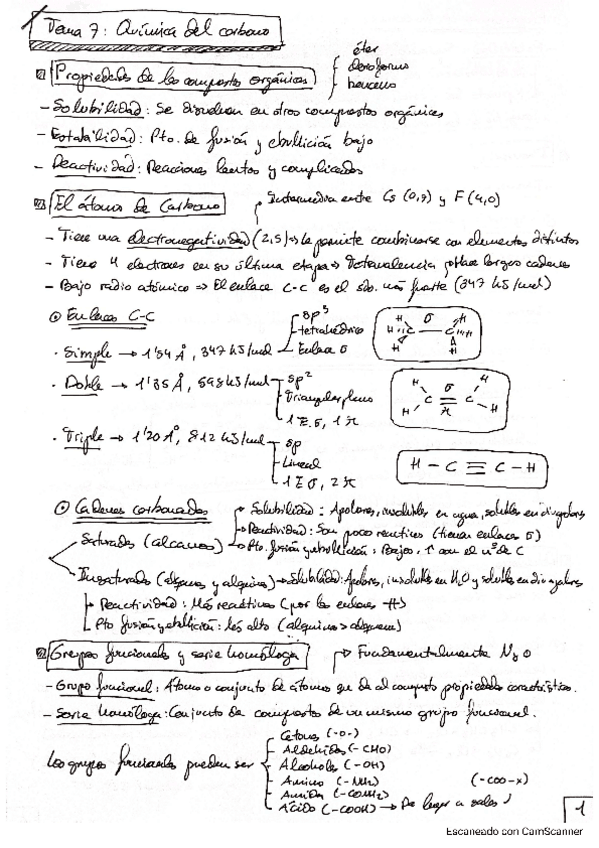 Tema 7: Química del carbono
éter
cloroformo
benceno
Propiedades de los compuestos orgánicos
- Solubilidad: Se disuelven en otros compuestos orgánicos
- Estabilidad: Pto. de fusión y ebullición bajo
- Reactividad: Reacciones lentas y complicadas
El átomo de Carbono
Intermedia entre Cs (0,7) y F (4,0)
- Tiene una electronegatividad (2,5) ⇒ le permite combinarse con elementos distintos
- Tiene 4 electrones en su última etapa ⇒ Tetravalencia largas cadenas
- Bajo radio atómico ⇒ El enlace C-C es el más fuerte (347 kJ/mol)
Enlaces C-C
· Simple → 1'54 Å, 347 kJ/mol
sp³
tetraédrico
Enlace σ
H C σ C H
· Doble → 1'35 Å, 598 kJ/mol
sp²
Triangular plano
1 E. σ, 1 π
H C σ π C H
· Triple → 1'20 Å, 812 kJ/mol
sp
Lineal
1 E σ, 2 π
H - C ≡ C - H
Cadenas carbonadas
Saturadas (alcanos)
Solubilidad: Apolares, insolubles en agua, solubles en
Reactividad: Son poco reactivos (tienen enlaces σ)
Pto. fusión y ebullición: Bajos, ↑ con el nº de C
Insaturadas (alquenos y alquinos) → Solubilidad: Apolares, insolubles en H₂O y solubles en
Reactividad: Más reactivos (por los enlaces π)
Pto fusión y ebullición: Más alto (alquinos > alquenos)
Grupos funcionales y serie homóloga
Fundamentalmente N y O
- Grupo funcional: Átomo o conjunto de átomos que da al compuesto propiedades características.
- Serie homóloga: Conjunto de compuestos de un mismo grupo funcional.
Los grupos funcionales pueden ser
Cetonas (-O-)
Aldehídos (-CHO)
Alcoholes (-OH)
Amino (-NH₂)
Amida (-CONH₂)
Ácido (-COOH) → Da lugar a sales
(-COO-X)
1
Escaneado con CamScanner